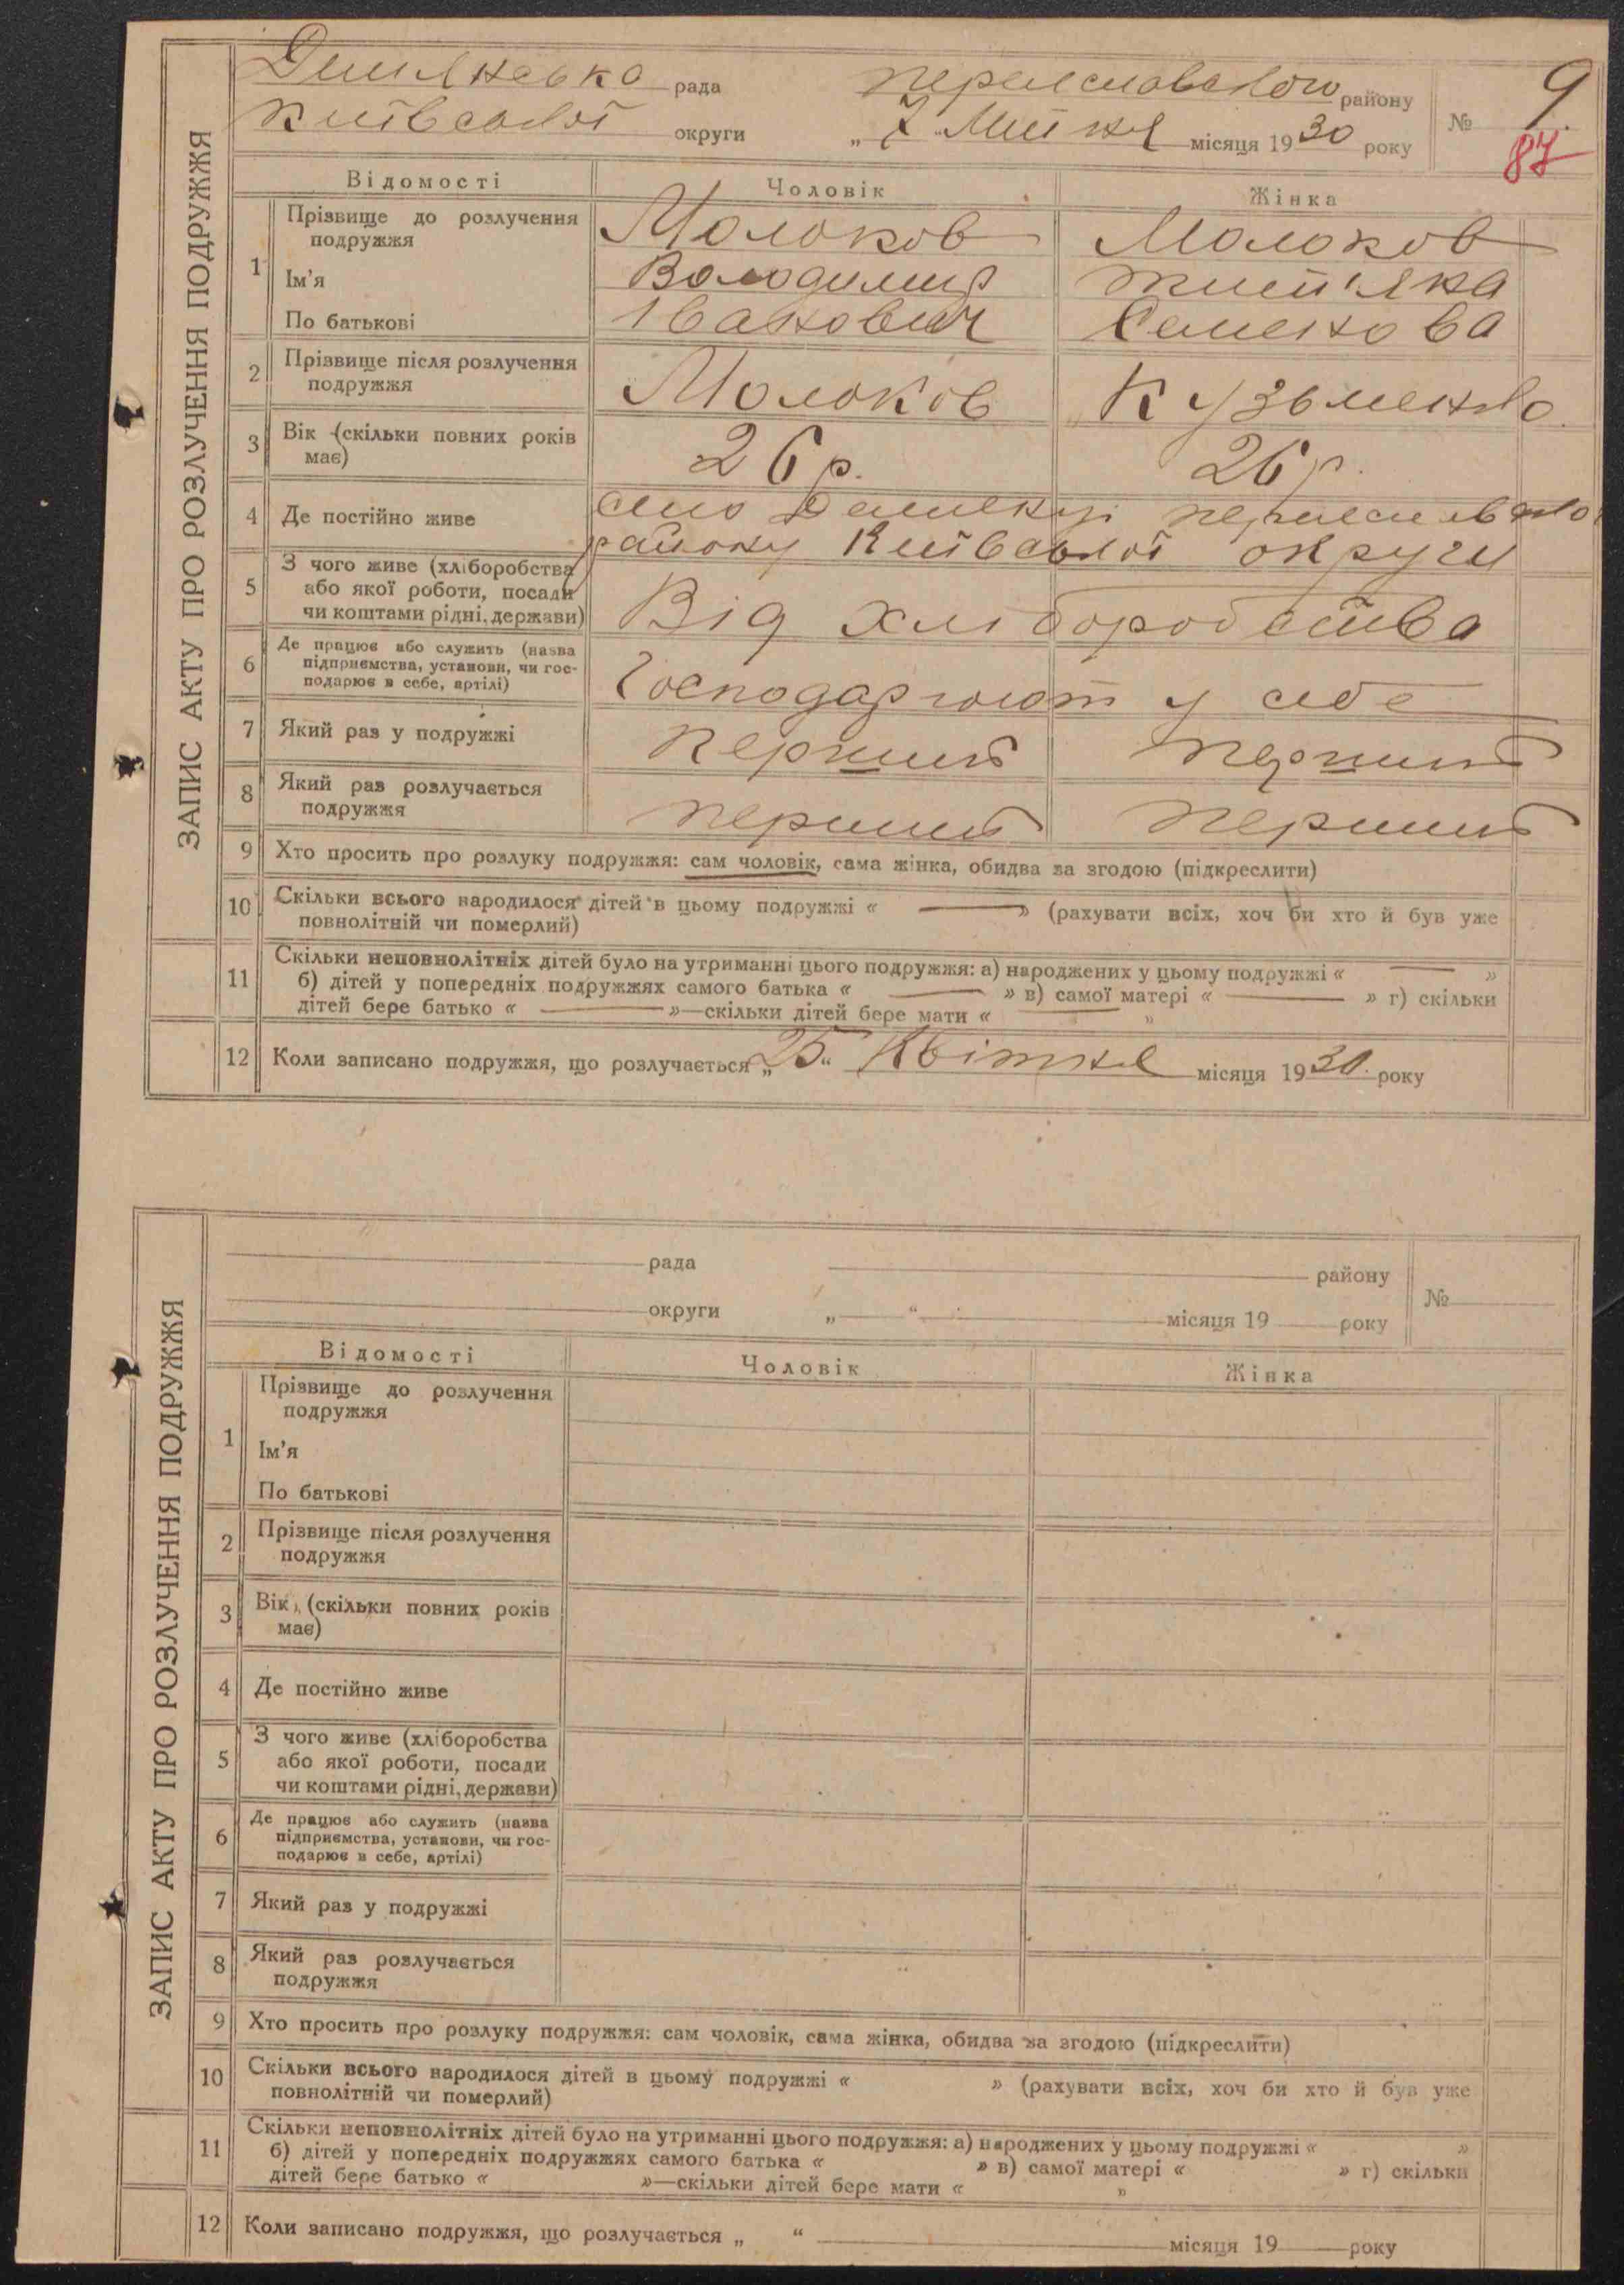 ЗАПИС АКТУ ПРО РОЗЛУЧЕННЯ ПОДРУЖЖЯ
рада району № 9
Київської округи „ 7 “ місяця 1930 року 87
Відомості Чоловік Жінка
1 Прізвище до розлучення Молоков Молоков
подружжя
Ім'я Володимир
По батькові Іванович Семенова
2 Прізвище після розлучення Молоков Кузьменко
подружжя
3 Вік (скільки повних років 26 р. 26 р.
має)
4 Де постійно живе село
району Київської округи
5 З чого живе (хліборобства
або якої роботи, посади Від хліборобства
чи коштами рідні, держави)
6 Де працює або служить (назва
підприємства, установи, чи гос- Господарюют у себе
подарює в себе, артілі)
7 Який раз у подружжі перший перший
8 Який раз розлучається перший перший
подружжя
9 Хто просить про розлуку подружжя: сам чоловік, сама жінка, обидва за згодою (підкреслити)
10 Скільки всього народилося дітей в цьому подружжі « — » (рахувати всіх, хоч би хто й був уже
повнолітній чи померлий)
11 Скільки неповнолітніх дітей було на утриманні цього подружжя: а) народжених у цьому подружжі « — »
б) дітей у попередніх подружжях самого батька « — » в) самої матері « — » г) скільки
дітей бере батько « — »—скільки дітей бере мати « — »
12 Коли записано подружжя, що розлучається „ 25 “ Квітня місяця 1930 року
ЗАПИС АКТУ ПРО РОЗЛУЧЕННЯ ПОДРУЖЖЯ
рада району №
округи „ “ місяця 19 року
Відомості Чоловік Жінка
1 Прізвище до розлучення
подружжя
Ім'я
По батькові
2 Прізвище після розлучення
подружжя
3 Вік, (скільки повних років
має)
4 Де постійно живе
5 З чого живе (хліборобства
або якої роботи, посади
чи коштами рідні, держави)
6 Де працює або служить (назва
підприємства, установи, чи гос-
подарює в себе, артілі)
7 Який раз у подружжі
8 Який раз розлучається
подружжя
9 Хто просить про розлуку подружжя: сам чоловік, сама жінка, обидва за згодою (підкреслити)
10 Скільки всього народилося дітей в цьому подружжі « » (рахувати всіх, хоч би хто й був уже
повнолітній чи померлий)
11 Скільки неповнолітніх дітей було на утриманні цього подружжя: а) народжених у цьому подружжі « »
б) дітей у попередніх подружжях самого батька « » в) самої матері « » г) скільки
дітей бере батько « »—скільки дітей бере мати « »
12 Коли записано подружжя, що розлучається „ “ місяця 19 року